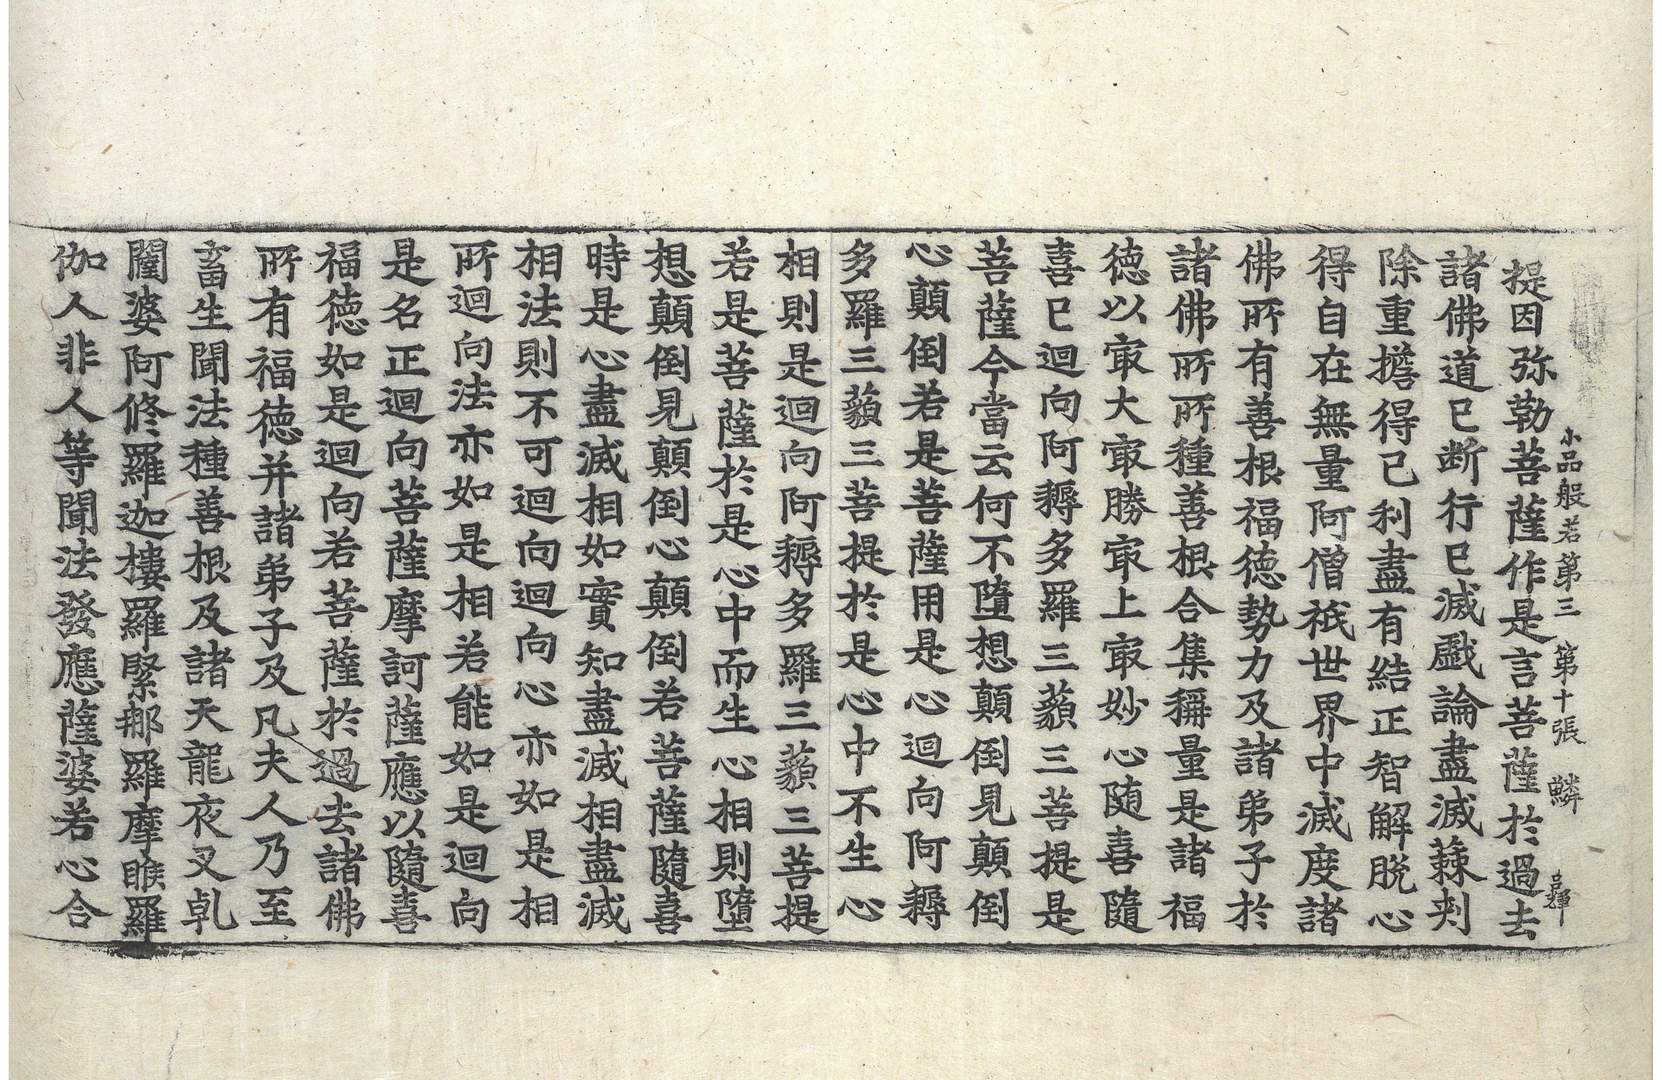 小品般若第三 第十張 鱗
提因弥勒菩薩作是言菩薩扵過去
諸佛道已断行已滅戲論盡滅蕀刾
除重擔得己利盡有結正智解脱心
得自在無量阿僧祇世界中滅度諸
佛所有善根福德勢力及諸弟子扵
諸佛所所種善根合集稱量是諸福
德以㝡大㝡勝㝡上㝡妙心随喜隨
喜已迴向阿耨多羅三藐三菩提是
菩薩今當云何不墮想顛倒見顛倒
心顛倒若是菩薩用是心迴向阿耨
多羅三藐三菩提扵是心中不生心
相則是迴向阿耨多羅三藐三菩提
若是菩薩扵是心中而生心相則墮
想顛倒見顛倒心顛倒若菩薩隨喜
時是心盡滅相如實知盡滅相盡滅
相法則不可迴向迴向心亦如是相
所迴向法亦如是相若能如是迴向
是名正迴向菩薩摩訶薩應以隨喜
福德如是迴向若菩薩扵過去諸佛
所有福德并諸弟子及凡夫人乃至
畜生聞法種善根及諸天龍夜叉乹
闥婆阿修羅迦樓羅緊那羅摩睺羅
伽人非人等聞法發應薩婆若心合